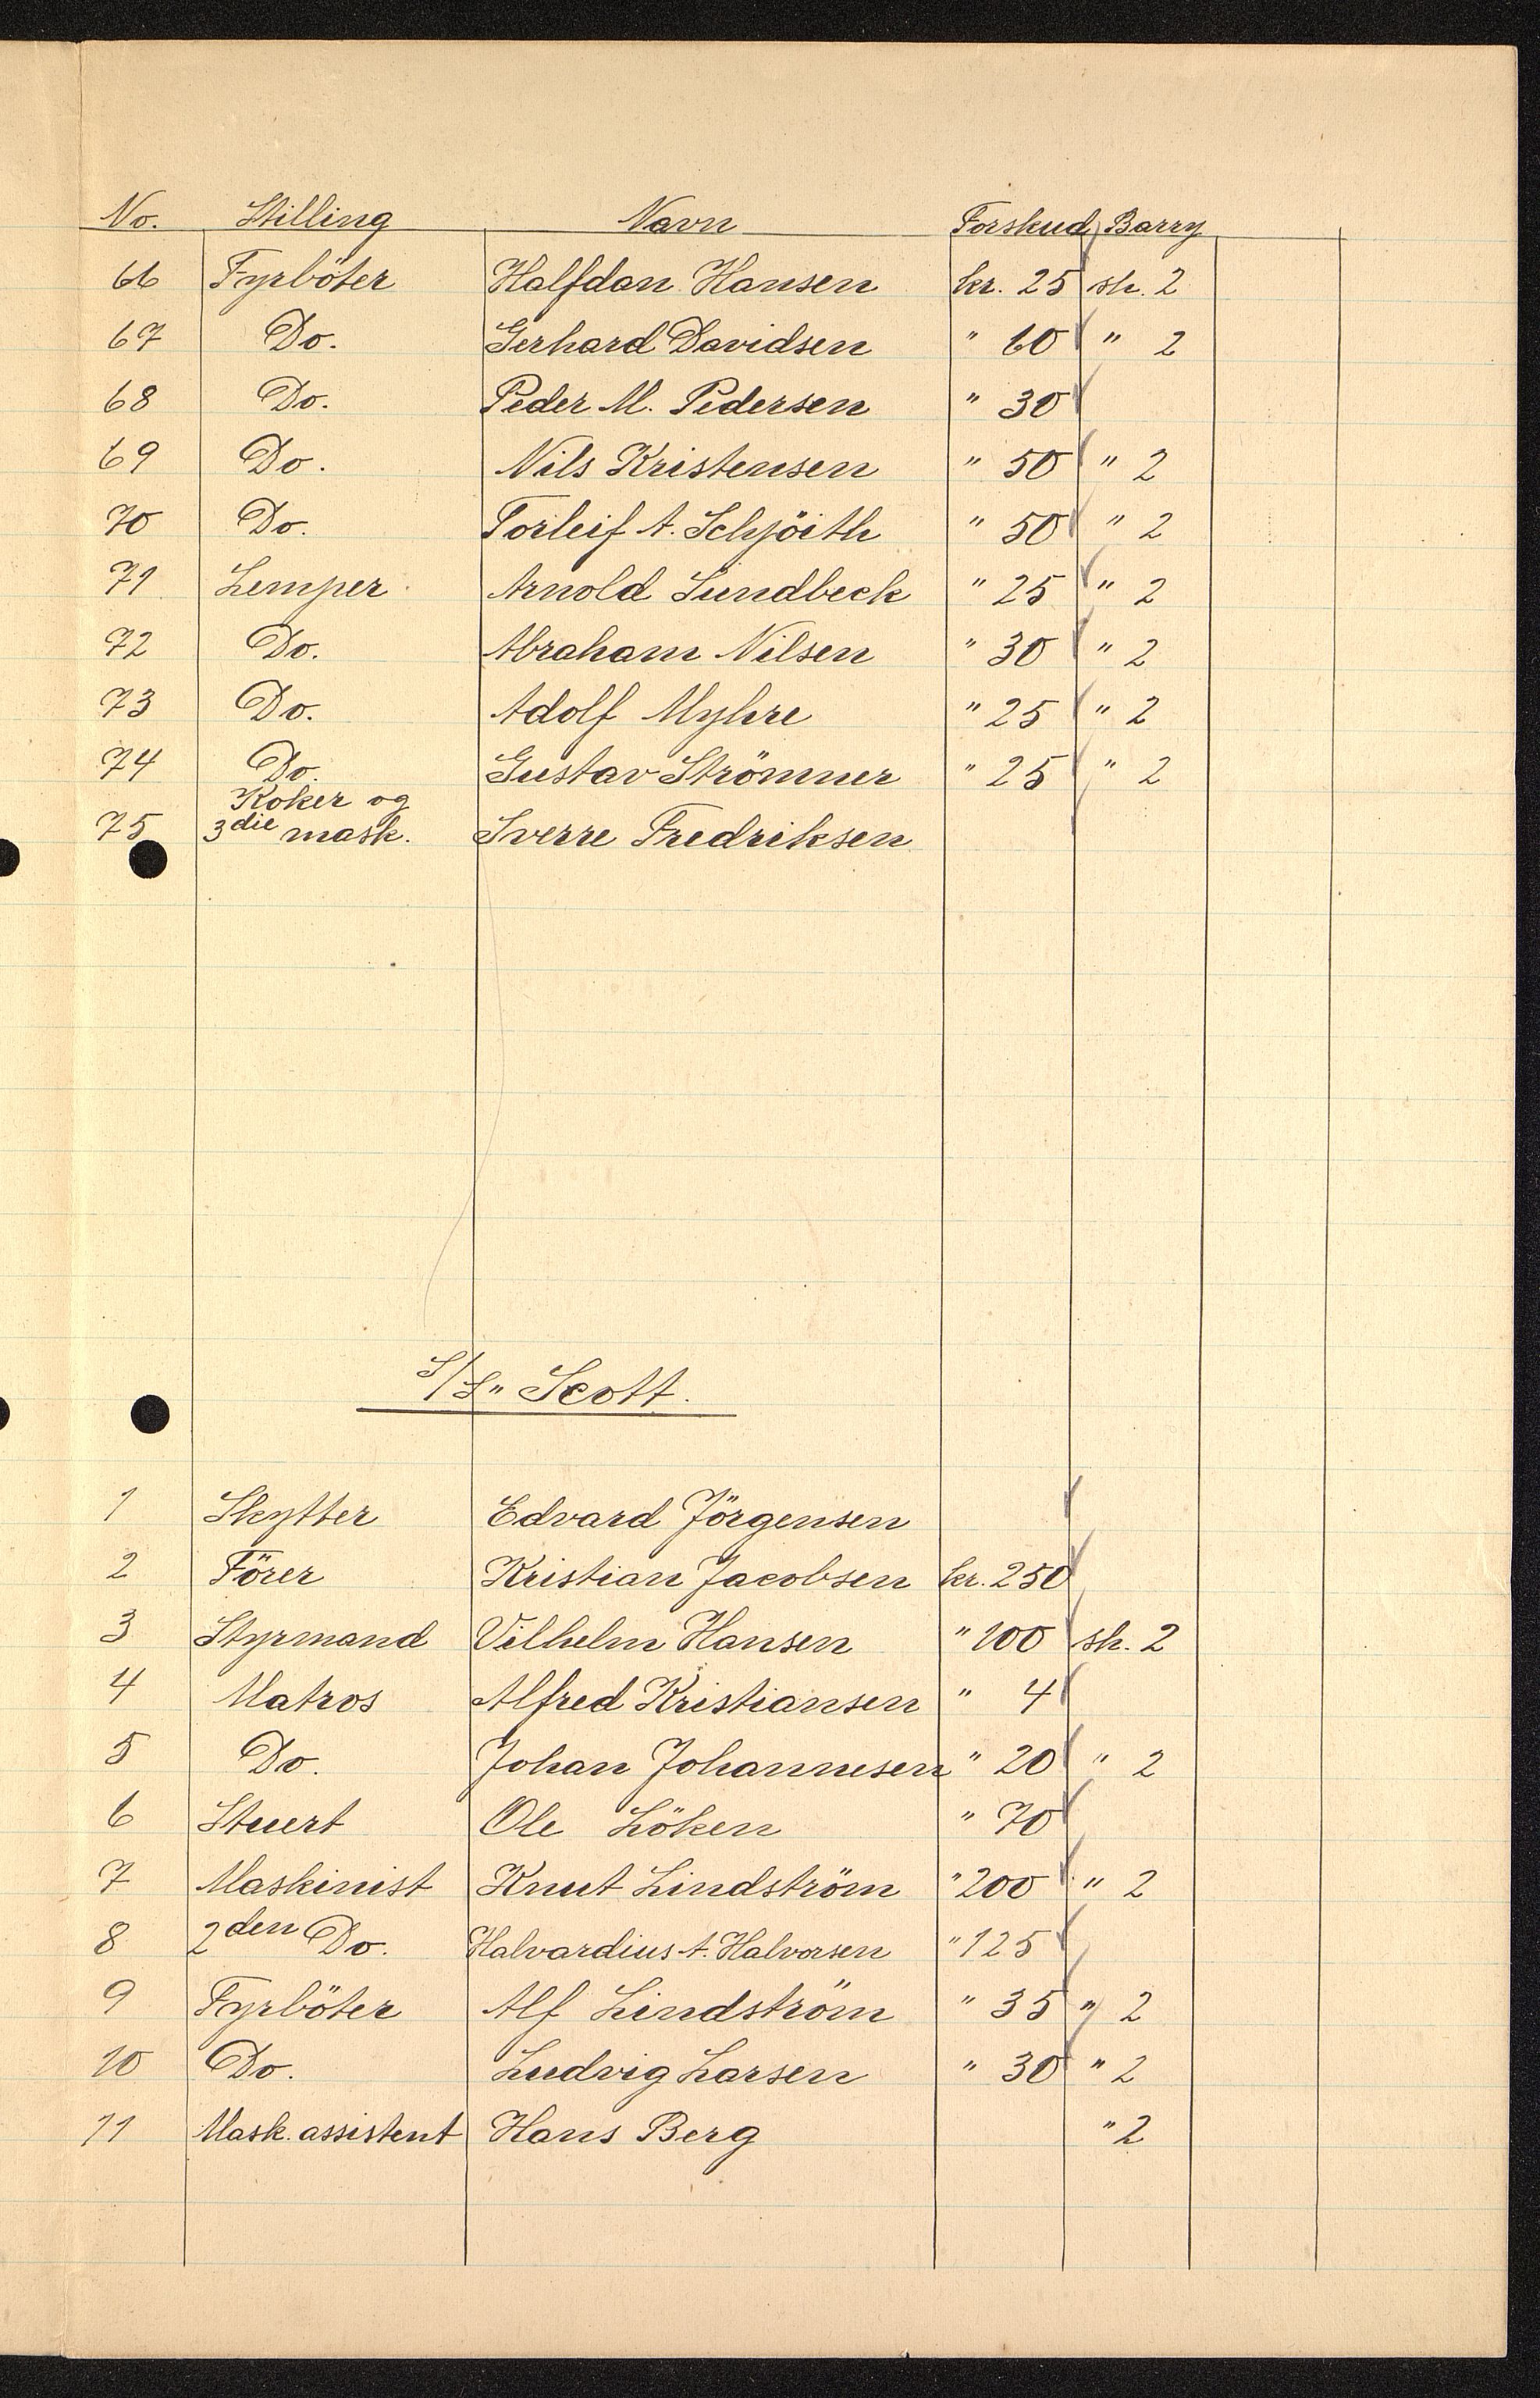 No. Stilling Navn Forskud Barry
66 Fyrböter Halfdan Hansen kr. 25 sh. 2
67 Do. Gerhard Davidsen " 60 " 2
68 Do. Peder M. Pedersen " 30
69 Do. Nils Kristensen " 50 " 2
70 Do. Torleif A. Schjöith " 50 " 2
71 Lemper Arnold Lundbeck " 25 " 2
72 Do. Abraham Nilsen " 30 " 2
73 Do. Adolf Myhre " 25 " 2
74 Do. Gustav Strömner " 25 " 2
Koker og
75 3die mask. Sverre Fredriksen
S/S" Scott.
1 Skytter Edvard Jörgensen
2 Förer Kristian Jacobsen kr. 250
3 Styrmand Vilhelm Hansen " 100 sh. 2
4 Matros Alfred Kristiansen " 4
5 Do. Johan Johannesen " 20 " 2
6 Stuert Ole Löken " 70
7 Maskinist Knut Lindström " 200 " 2
8 2den Do. Halvardius A. Halvorsen " 125
9 Fyrböter Alf Lindström " 35 " 2
10 Do. Ludvig Larsen " 30 " 2
11 Mask. assistent Hans Berg " 2